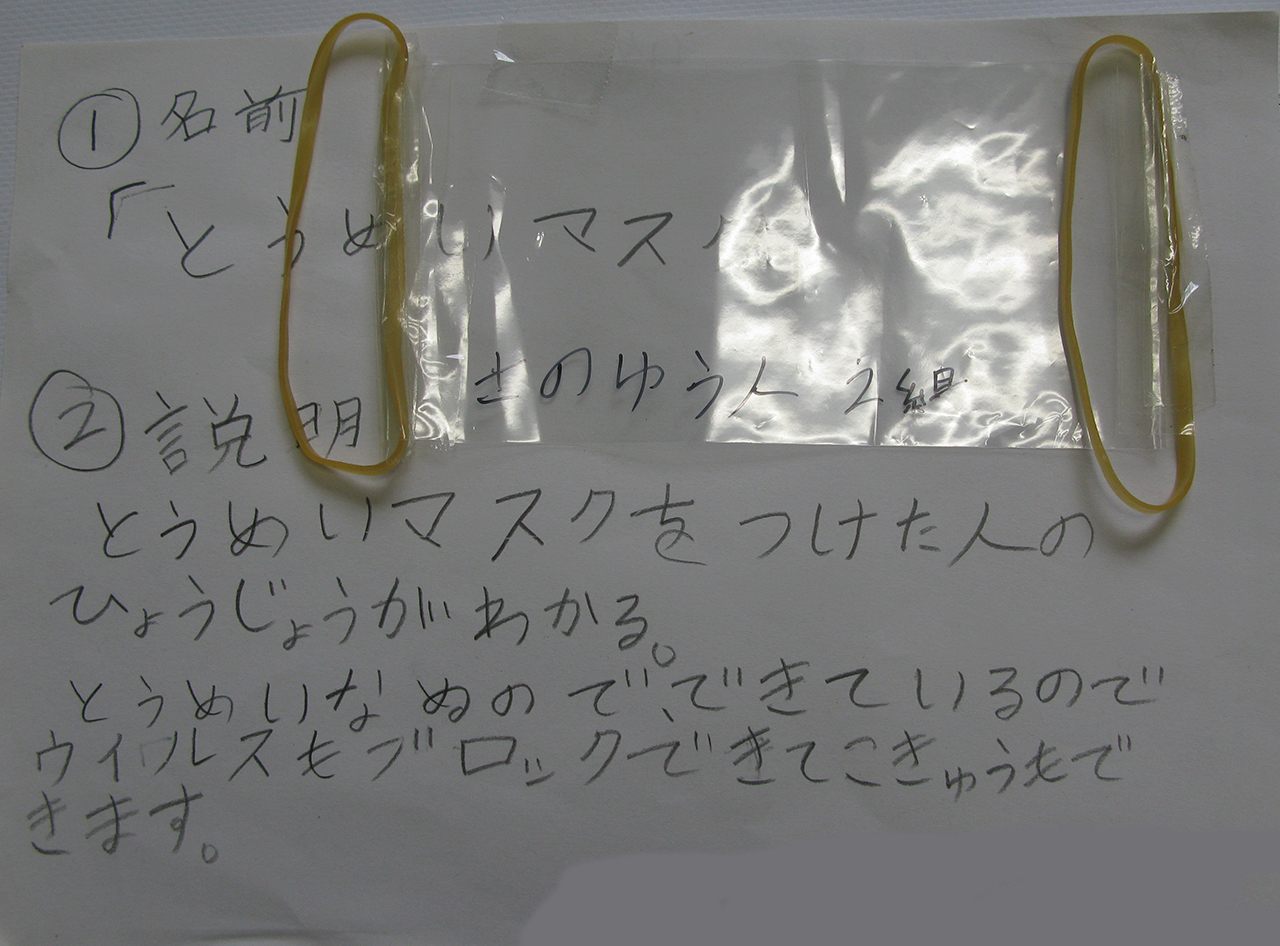 ①名前
「とうめいマスク
さのゆう人 2組
②説明
とうめいマスクをつけた人の
ひょうじょうがわかる。
とうめいなぬので、できているので
ウイルスもブロックできてこきゅうもで
きます。